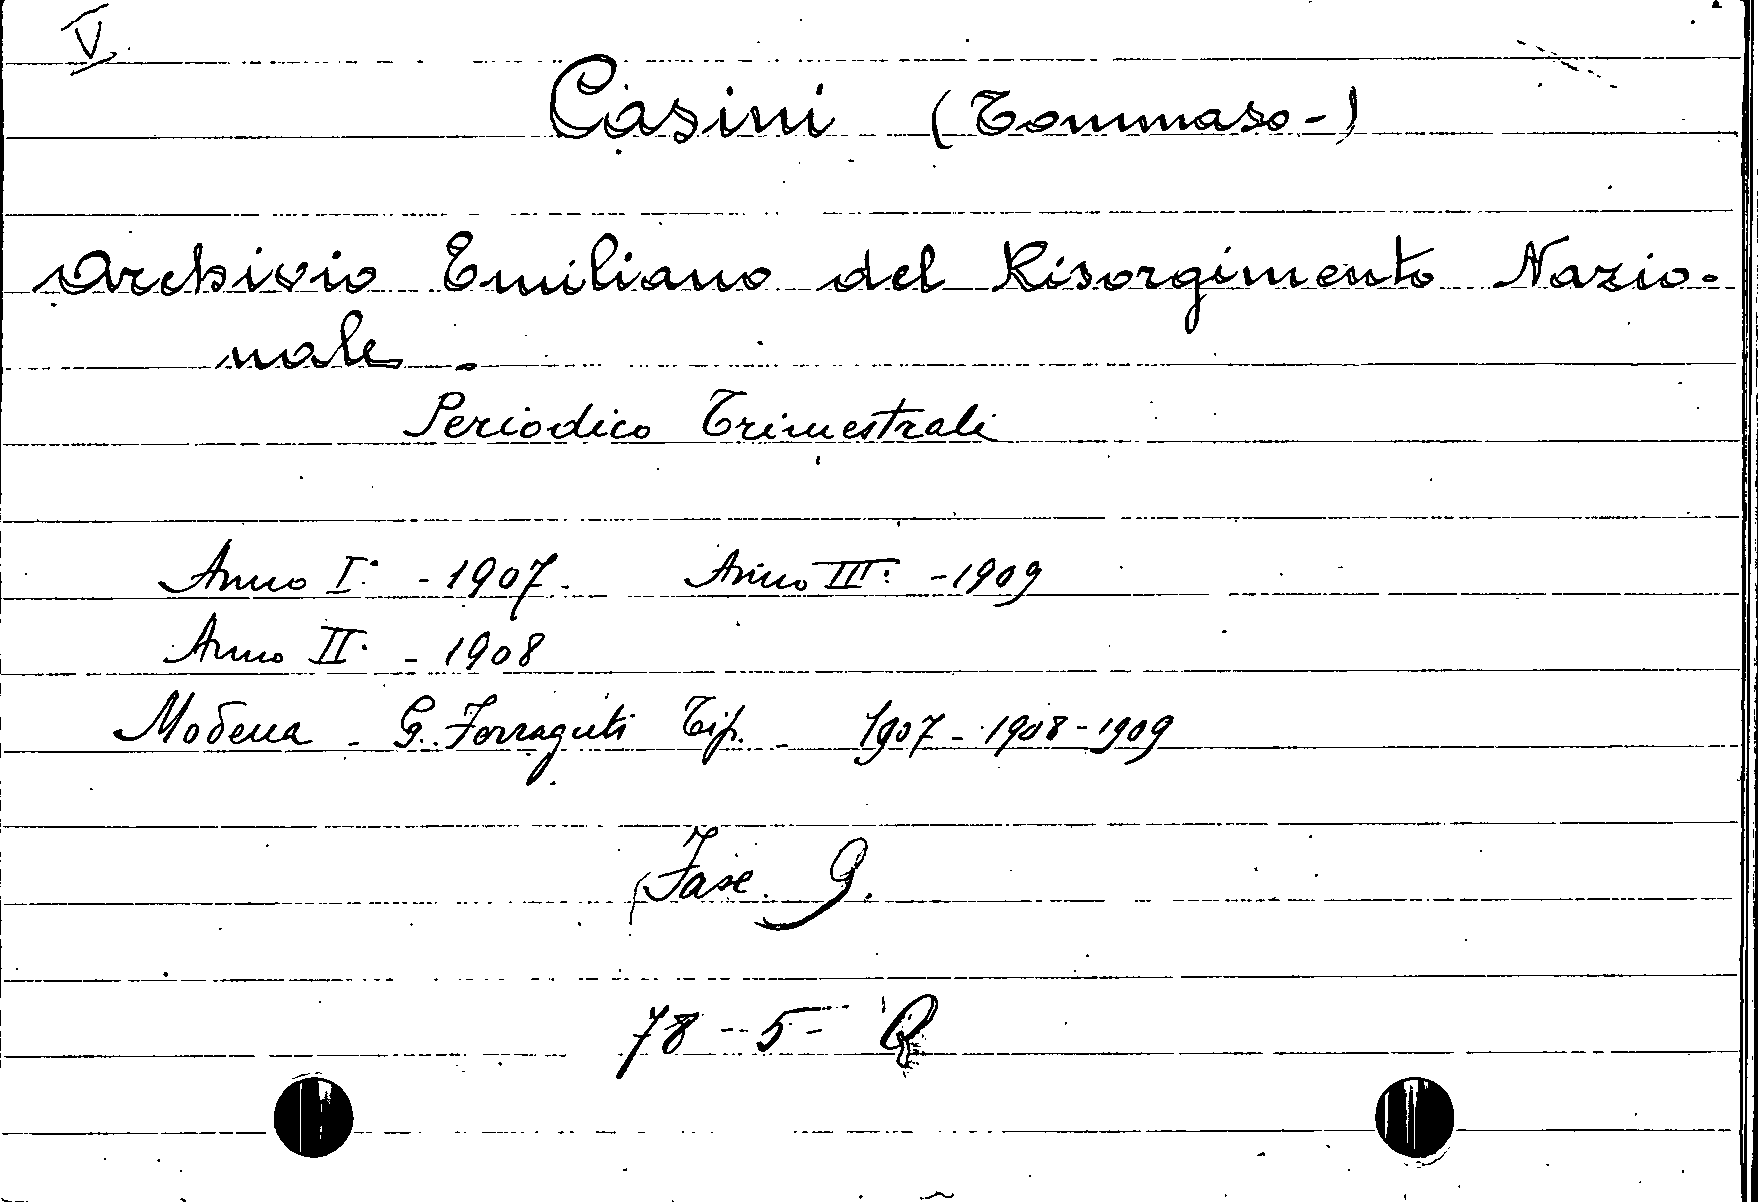 V
Casini (Tommaso-)
Archivio Emiliano del Risorgimento Nazio-
nale -
Periodico Trimestrali
Anno I.° - 1907 - Anno III.° - 1909
Anno II.° - 1908
Modena - G. Ferraguti Tip. - 1907 - 1908 - 1909
Fasc. 9.
78 - 5 -